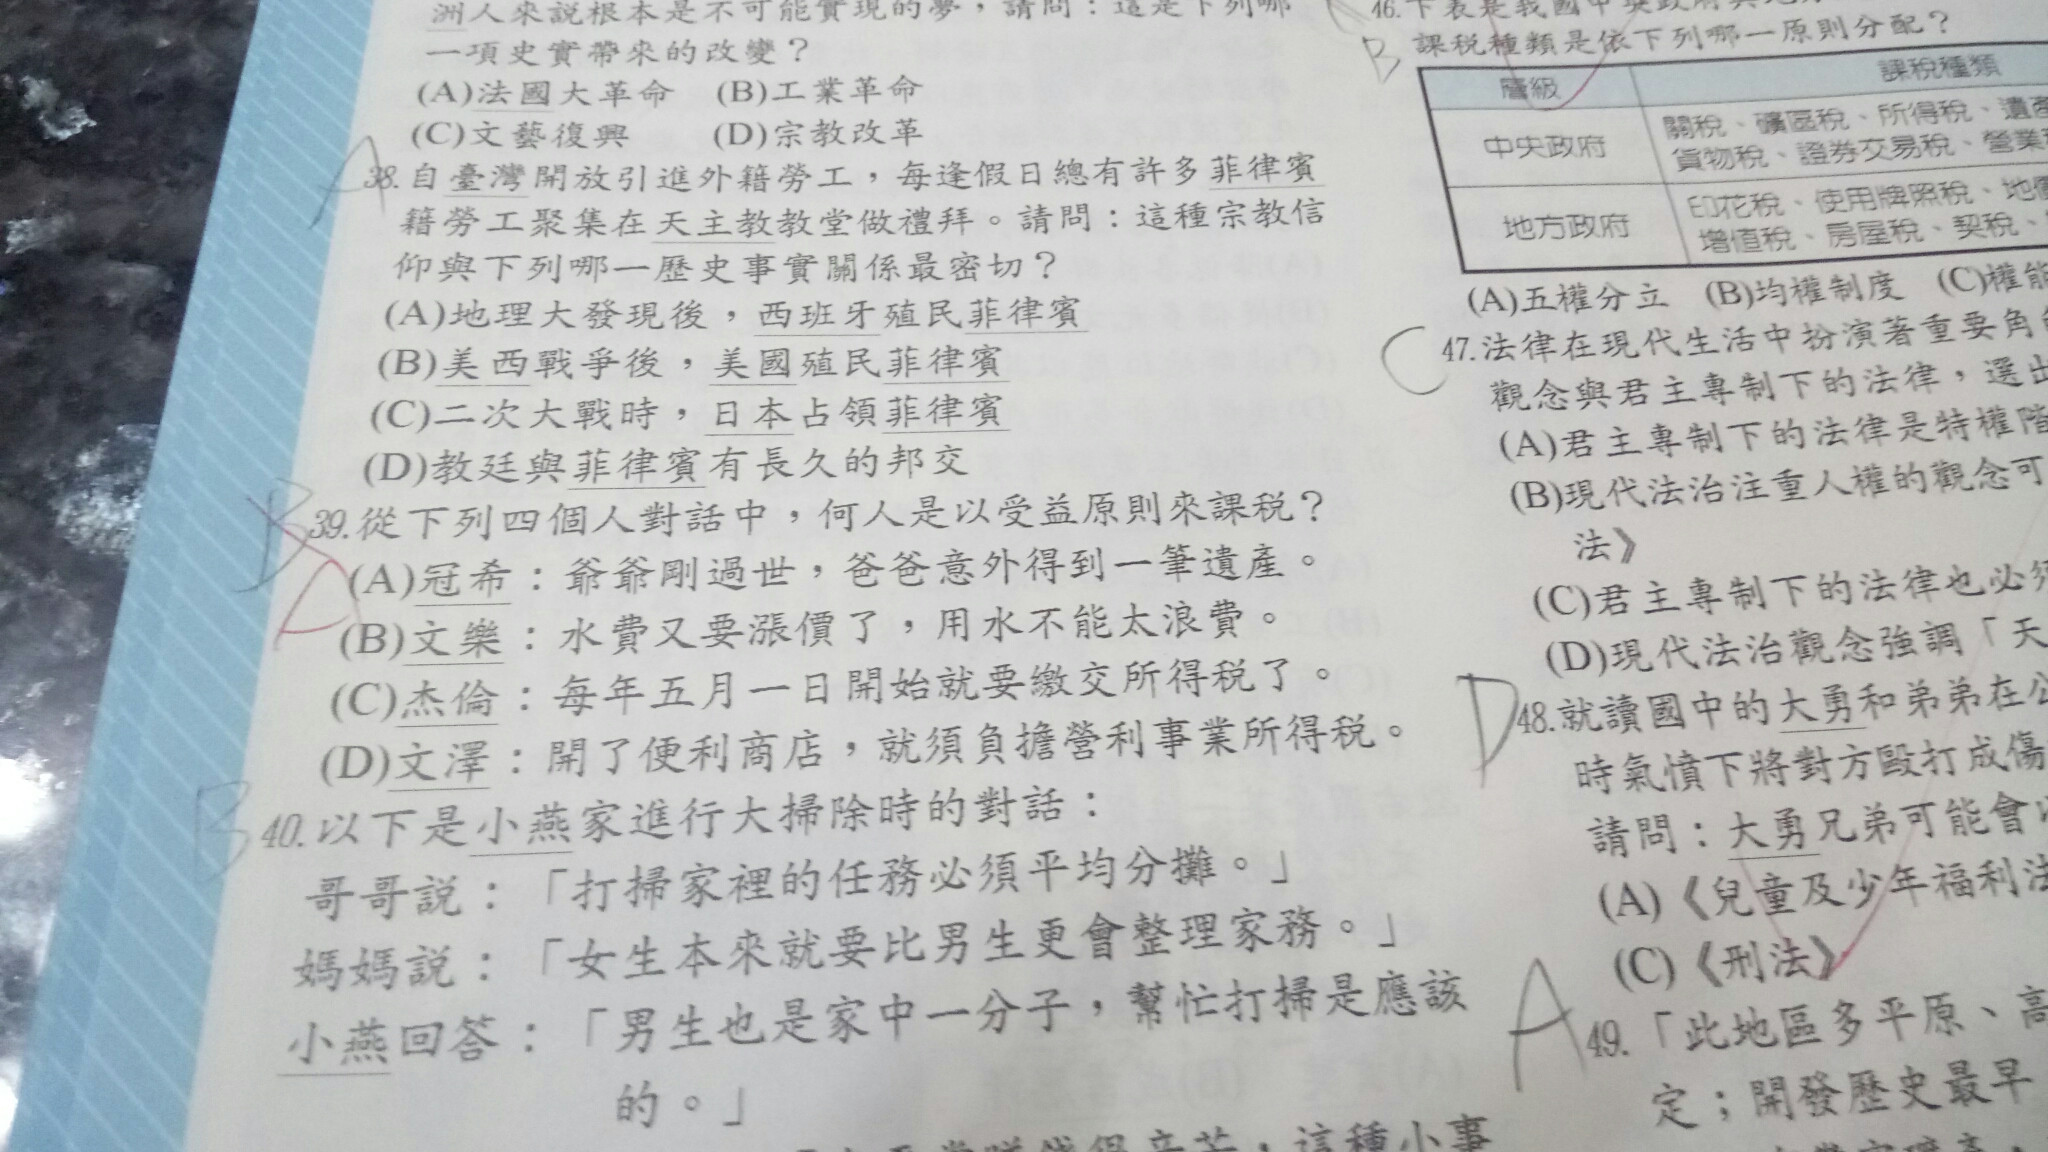 洲人來說根本是不可能實現的夢，請問：這是下列哪
一項史實帶來的改變？
(A)法國大革命 (B)工業革命
(C)文藝復興 (D)宗教改革
A
38.自臺灣開放引進外籍勞工，每逢假日總有許多菲律賓
籍勞工聚集在天主教教堂做禮拜。請問：這種宗教信
仰與下列哪一歷史事實關係最密切？
(A)地理大發現後，西班牙殖民菲律賓
(B)美西戰爭後，美國殖民菲律賓
(C)二次大戰時，日本占領菲律賓
(D)教廷與菲律賓有長久的邦交
B
39.從下列四個人對話中，何人是以受益原則來課稅？
(A)冠希：爺爺剛過世，爸爸意外得到一筆遺產。
(B)文樂：水費又要漲價了，用水不能太浪費。
(C)杰倫：每年五月一日開始就要繳交所得稅了。
(D)文澤：開了便利商店，就須負擔營利事業所得稅。
B
40.以下是小燕家進行大掃除時的對話：
哥哥說：「打掃家裡的任務必須平均分攤。」
媽媽說：「女生本來就要比男生更會整理家務。」
小燕回答：「男生也是家中一分子，幫忙打掃是應該
的。」
這種小事
B
46.下表是我國中央政府與地方
課稅種類是依下列哪一原則分配？
層級 課稅種類
中央政府 關稅、礦區稅、所得稅、遺產
貨物稅、證券交易稅、營業
地方政府 印花稅、使用牌照稅、地價
增值稅、房屋稅、契稅、
(A)五權分立 (B)均權制度 (C)權能
C
47.法律在現代生活中扮演著重要角
觀念與君主專制下的法律，選出
(A)君主專制下的法律是特權階
(B)現代法治注重人權的觀念可
法》
(C)君主專制下的法律也必須
(D)現代法治觀念強調「天
D
48.就讀國中的大勇和弟弟在公
時氣憤下將對方毆打成傷
請問：大勇兄弟可能會
(A)《兒童及少年福利法
(C)《刑法》
A
49.「此地區多平原、高
定；開發歷史最早